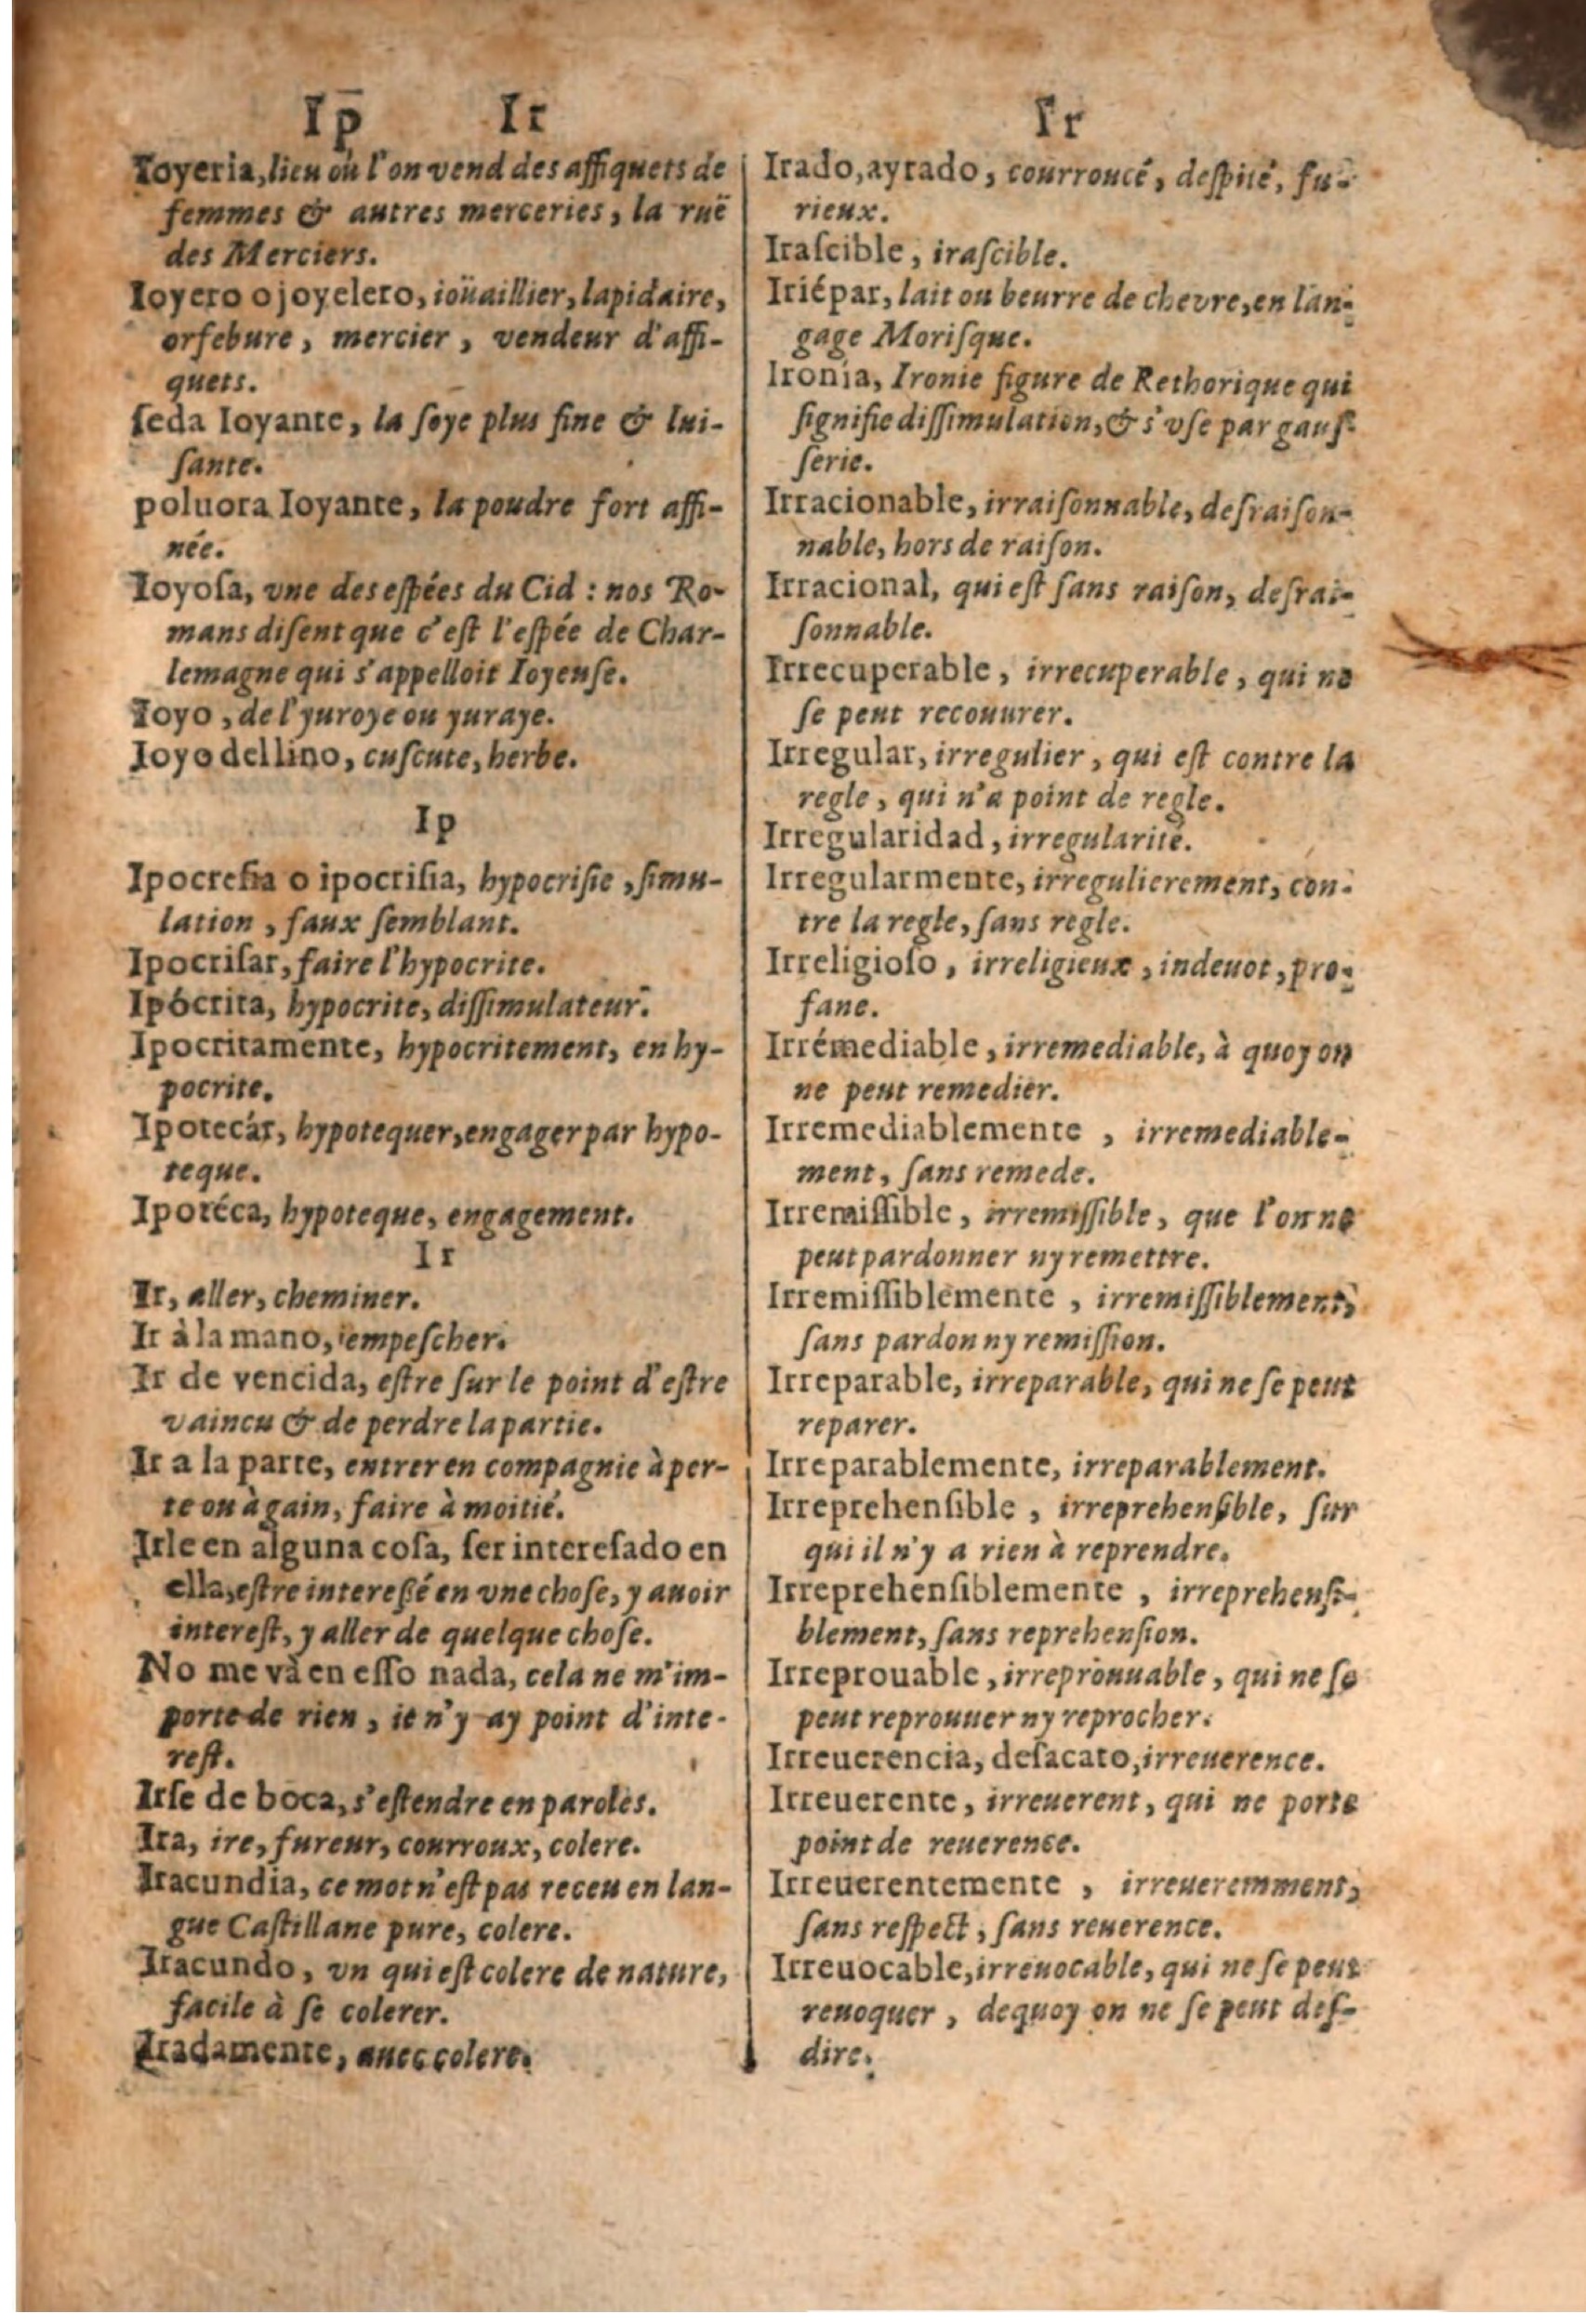 Ip Ir
Ioyeria, lieu où l'on vend des affiquets de
femmes & autres merceries, la ruë
des Merciers.
Ioyero o joyelero, ioüaillier, lapidaire,
orfebure, mercier, vendeur d'affi-
quets.
ſeda Ioyante, la ſoye plus fine & lui-
ſante.
poluora Ioyante, la poudre fort affi-
née.
Ioyoſa, vne des eſpées du Cid : nos Ro-
mans diſent que c'eſt l'eſpée de Char-
lemagne qui s'appelloit Ioyeuſe.
Ioyo, de l'yuroye ou yuraye.
Ioyo del lino, cuſcute, herbe.
Ip
Ipocreſia o ipocriſia, hypocriſie, ſimu-
lation, faux ſemblant.
Ipocriſar, faire l'hypocrite.
Ipócrita, hypocrite, diſſimulateur.
Ipocritamente, hypocritement, en hy-
pocrite.
Ipotecár, hypotequer, engager par hypo-
teque.
Ipotéca, hypoteque, engagement.
Ir
Ir, aller, cheminer.
Ir à la mano, empeſcher.
Ir de vencida, eſtre ſur le point d'eſtre
vaincu & de perdre la partie.
Ir a la parte, entrer en compagnie à per-
te ou à gain, faire à moitié.
Irle en alguna coſa, ſer intereſado en
ella, eſtre intereßé en vne choſe, y auoir
intereſt, y aller de quelque choſe.
No me và en eſſo nada, cela ne m'im-
porte de rien, ie n'y ay point d'inte-
reſt.
Irſe de boca, s'eſtendre en paroles.
Ira, ire, fureur, courroux, colere.
Iracundia, ce mot n'eſt pas receu en lan-
gue Caſtillane pure, colere.
Iracundo, vn qui eſt colere de nature,
facile à ſe colerer.
Iradamente, auec colere.
Ir
Irado, ayrado, courroucé, deſpité, fu-
rieux.
Iraſcible, iraſcible.
Iriépar, lait ou beurre de chevre, en lan-
gage Moriſque.
Ironía, Ironie figure de Rethorique qui
ſignifie diſſimulation, & s'vſe par gauſ-
ſerie.
Irracionable, irraiſonnable, deſraiſon-
nable, hors de raiſon.
Irracional, qui eſt ſans raiſon, deſrai-
ſonnable.
Irrecuperable, irrecuperable, qui ne
ſe peut recouurer.
Irregular, irregulier, qui eſt contre la
regle, qui n'a point de regle.
Irregularidad, irregularité.
Irregularmente, irregulierement, con-
tre la regle, ſans regle.
Irreligioſo, irreligieux, indeuot, pro-
fane.
Irrémediable, irremediable, à quoy on
ne peut remedier.
Irremediablemente, irremediable-
ment, ſans remede.
Irremiſſible, irremiſſible, que l'on ne
peut pardonner ny remettre.
Irremiſſiblemente, irremiſſiblement,
ſans pardon ny remiſſion.
Irreparable, irreparable, qui ne ſe peut
reparer.
Irreparablemente, irreparablement.
Irreprehenſible, irreprehenſible, ſur
qui il n'y a rien à reprendre.
Irreprehenſiblemente, irreprehenſi-
blement, ſans reprehenſion.
Irreprouable, irreprouuable, qui ne ſe
peut reprouuer ny reprocher.
Irreuerencia, deſacato, irreuerence.
Irreuerente, irreuerent, qui ne porte
point de reuerence.
Irreuerentemente, irreueremment,
ſans reſpect, ſans reuerence.
Irreuocable, irreuocable, qui ne ſe peut
reuoquer, dequoy on ne ſe peut deſ-
dire.